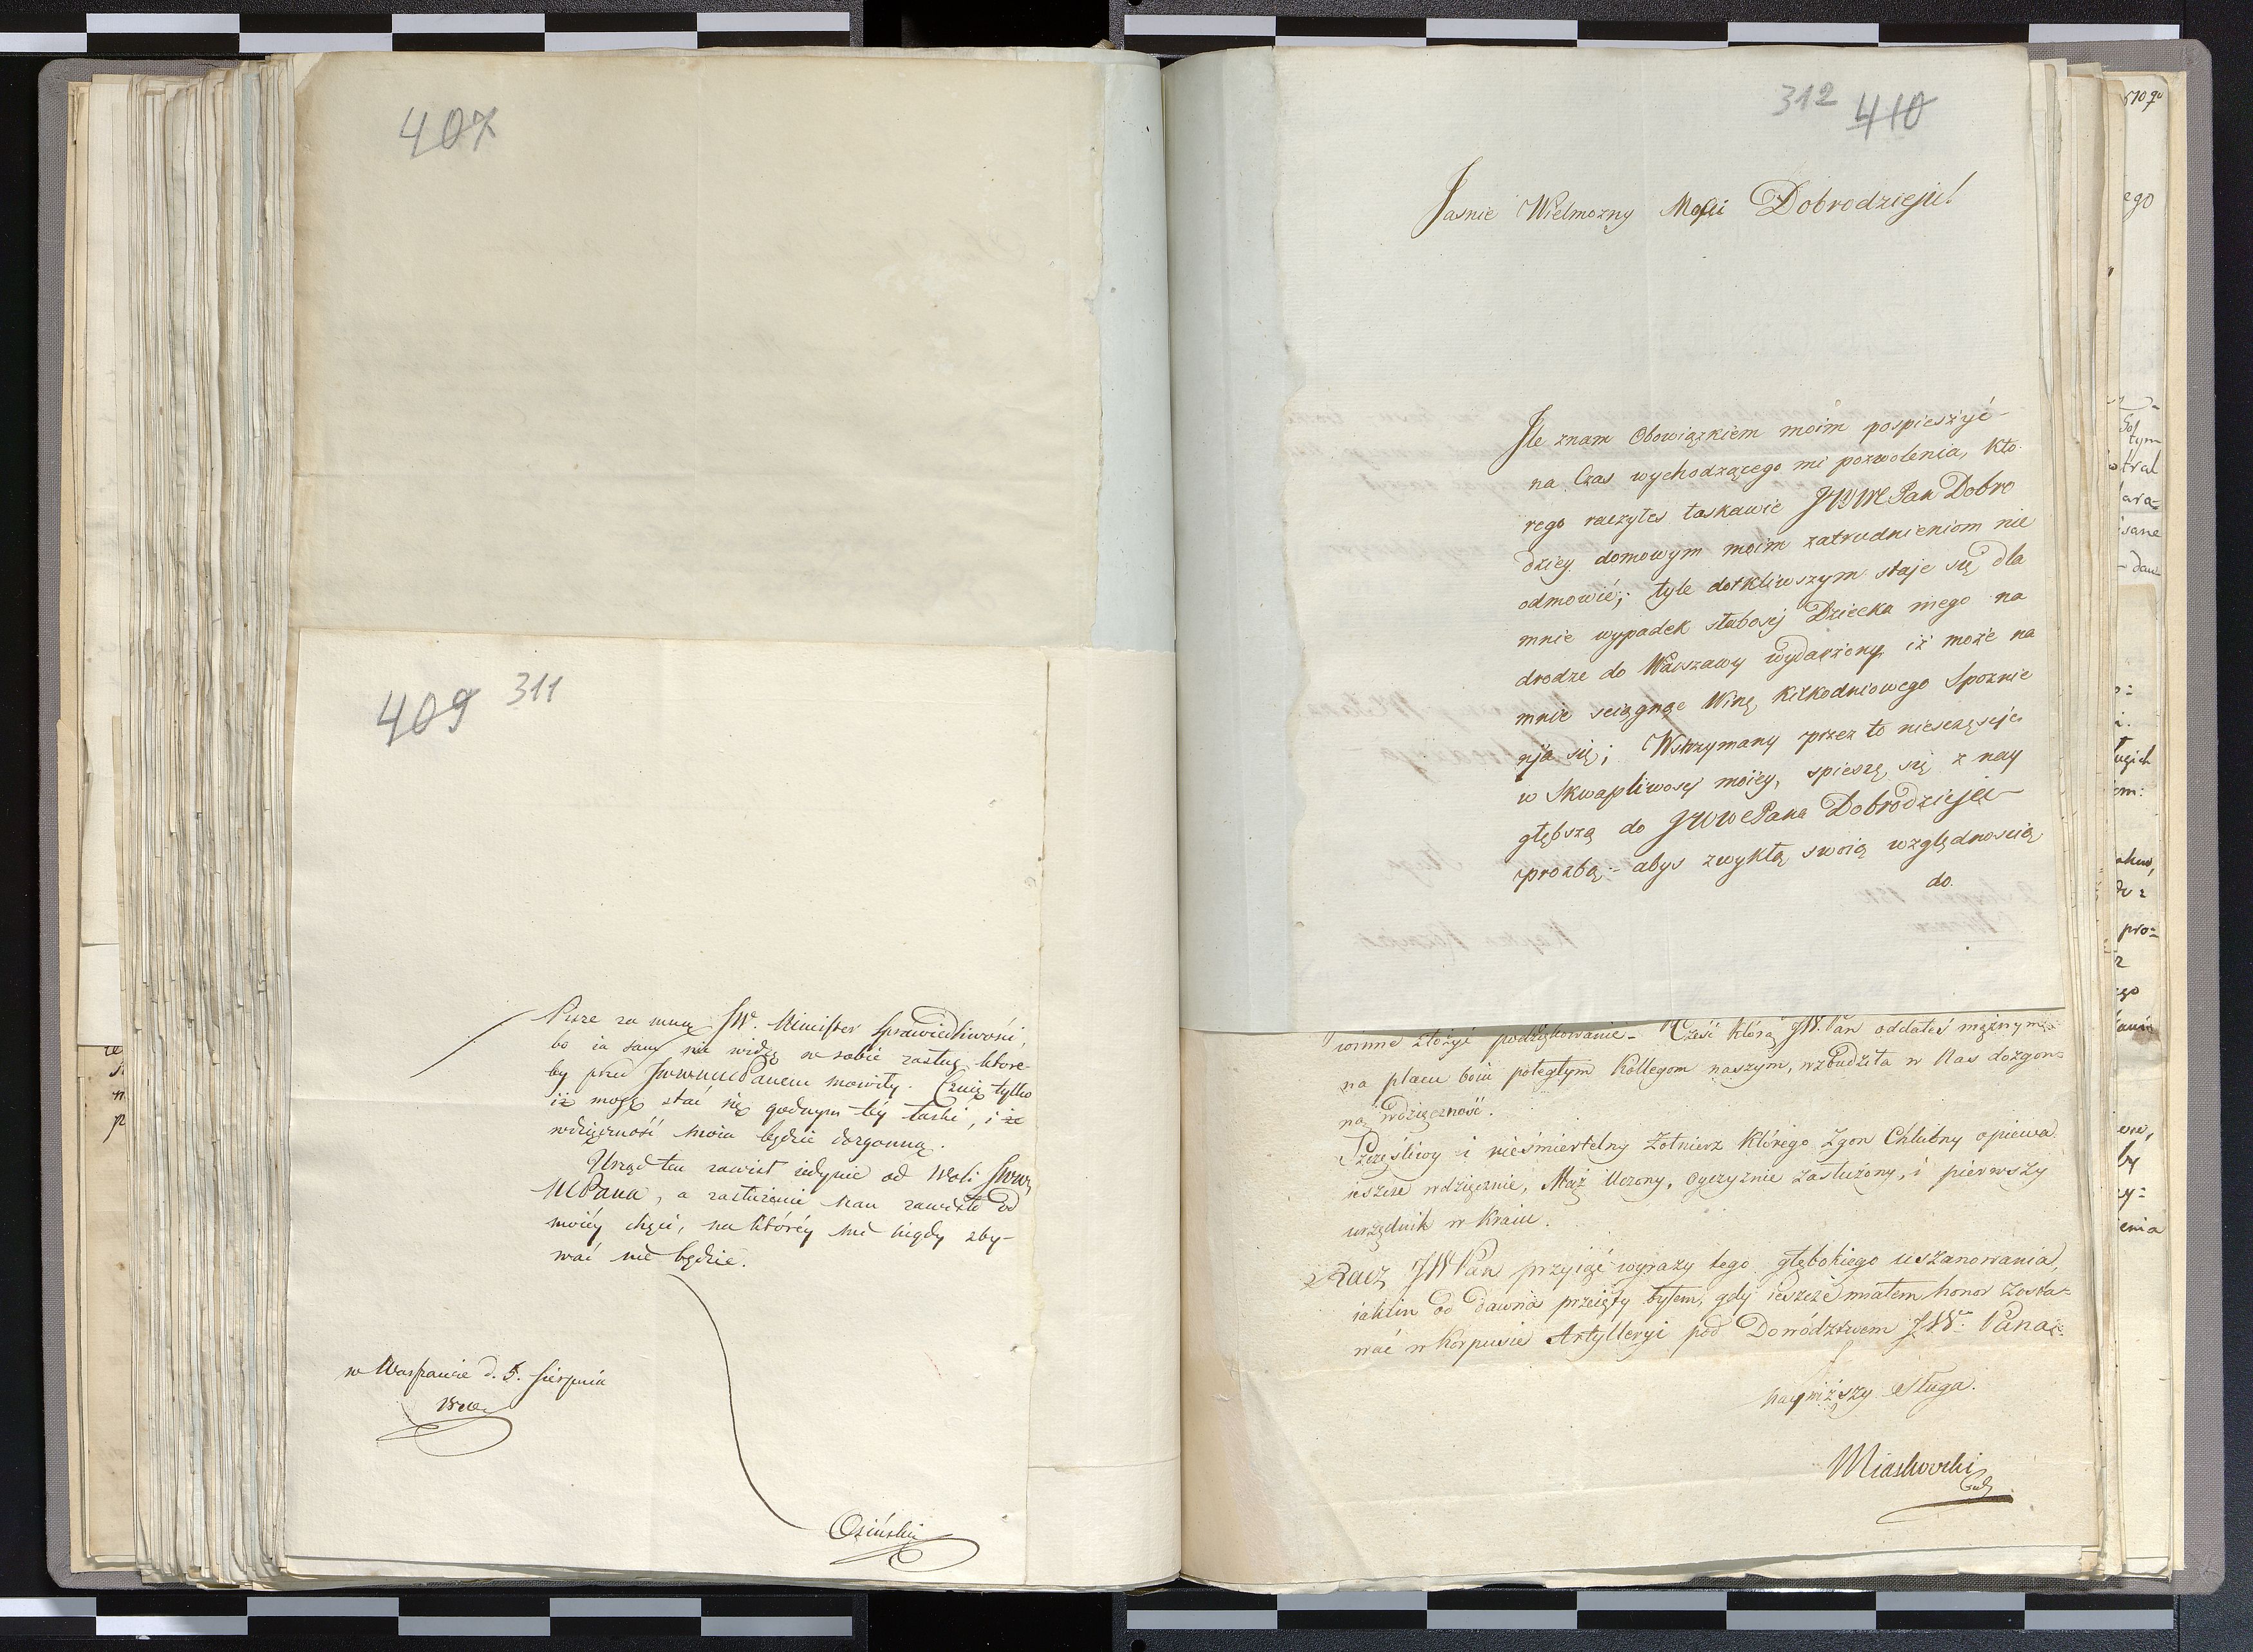 407
409 311
Pisze za mną JW. Minister Sprawiedliwości,
bo ia sam nie widzę w sobie zasług, ktore
by przed JWWMPanem mowiły. Czuię tylko
iż mogę stać się godnym tey łaski, i że
wdzięczność moia będzie dozgonną.
Urząd ten zawisł iedynie od Woli JWW
MPana, a zasłużenie nań zawisło od
moiéy chęci, na któréy mi nigdy zby-
wać nie będzie.
w Warszawie d. 5. Sierpnia
Osiński
312 410
Jasnie Wielmozny Mosci Dobrodzieju!
Ile znam Obowiązkiem moim pospieszyć
na Czas wychodzącego mi pozwolenia, kto-
rego raczyłes łaskawie JWWPan Dobro
dziey domowym moim zatrudnieniom nie
odmowić; tyle dotkliwszym staje się dla
mnie wypadek słabosci Dziecka mego na
drodze do Warszawy wydarzony, iż może na
mnie sciągnąc Winę kilkodniowego Spoznie
nja się; Wstrzymany przez to niesczęscje
w Skwapliwosci moiey, spieszę się z nay
głębszą do JWWPana Dobrodzieja
prozbą - abys zwykłą swoią względnoscią
do.
winne złożyć podziękowanie - Cześć którą JW. Pan oddałeś mężnym
na placu boiu poległym Kollegom naszym, wzbudziła w Nas dozgon=
ną wdzięczność.
Szczęśliwy i nieśmiertelny Żołnierz którego Zgon Chlubny opiewa
ieszcze wdzięcznie, Mąż Uczony, Oyczyznie zasłużony, i pierwszy
urzędnik w Kraiu.
Racz JWPan przyiąć wyrazy tego głębokiego uszanowania,
iakiem od dawna przeięty byłem, gdy ieszcze miałem honor zosta=
wać w Korpusie Artylleryi pod Dowództwem JW. Pana
nayniższy Sługa.
Miaskowski